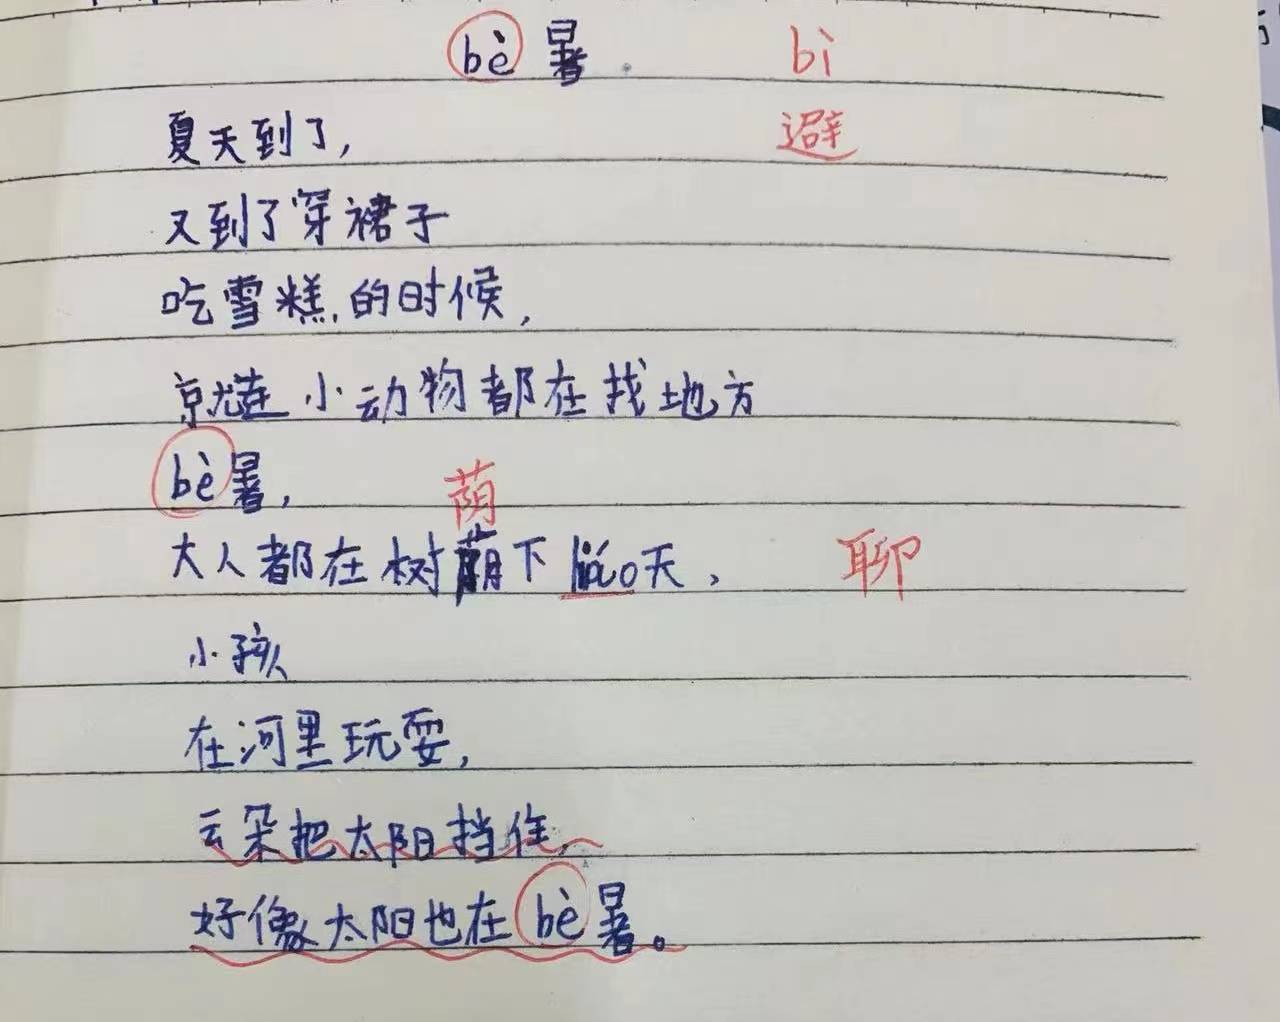 bè暑. bì
夏天到了, 避
又到了穿裙子
吃雪糕的时候,
就连小动物都在找地方
bè暑,
荫
大人都在树荫下liáo天, 聊
小孩
在河里玩耍,
云朵把太阳挡住,
好像太阳也在bè暑。